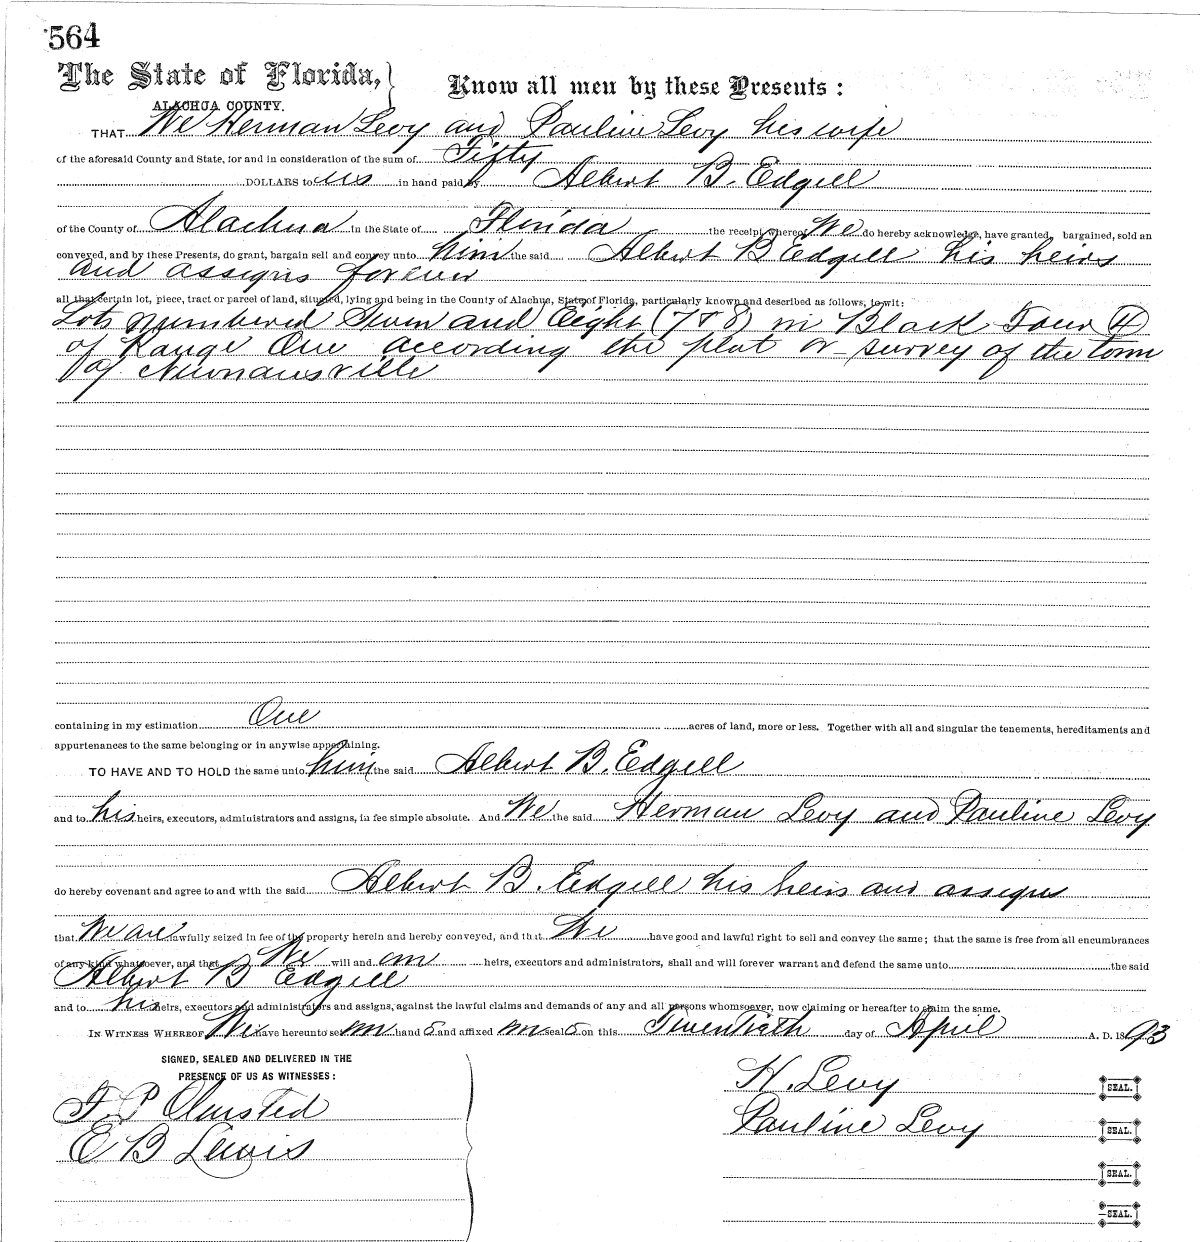 564
The State of Florida,} Know all men by these Presents :
ALACHUA COUNTY.
THAT We Herman Levy and Pauline Levy his wife
of the aforesaid County and State, for and in consideration of the sum of Fifty
DOLLARS to us in hand paid by Albert B. Edgell
of the County of Alachua In the State of Florida the receipt whereof We do hereby acknowledge, have granted, bargained, sold an
conveyed, and by these Presents, do grant, bargain sell and convey unto him the said Albert B Edgell his heirs
and assigns forever
all that certain lot, piece, tract or parcel of land, situated, lying and being in the County of Alachua, State of Florida, particularly known and described as follows, to wit:
Lots numbered Seven and Eight (7 & 8) in Block Four (4)
of Range One according the plat or survey of the town
of Newnansville
containing in my estimation One acres of land, more or less. Together with all and singular the tenements, hereditaments and
appurtenances to the same belonging or in anywise appertaining.
TO HAVE AND TO HOLD the same unto him the said Albert B. Edgell
and to his heirs, executors, administrators and assigns, in fee simple absolute. And We the said Herman Levy and Pauline Levy
do hereby covenant and agree to and with the said Albert B. Edgell his heirs and assigns
that We are lawfully seized in fee of the property herein and hereby conveyed, and that We have good and lawful right to sell and convey the same; that the same is free from all encumbrances
of any kind whatsoever, and that We will and our heirs, executors and administrators, shall and will forever warrant and defend the same unto the said
Albert B Edgell
and to his heirs, executors and administrators and assigns, against the lawful claims and demands of any and all persons whomsoever, now claiming or hereafter to claim the same.
IN WITNESS WHEREOF, We have hereunto set our hand s and affixed our seal s on this Twentieth day of April A. D. 1893
SIGNED, SEALED AND DELIVERED IN THE
PRESENCE OF US AS WITNESSES:
H. Levy SEAL.
F. P. Olmsted
Pauline Levy SEAL.
E B Lewis
SEAL.
SEAL.